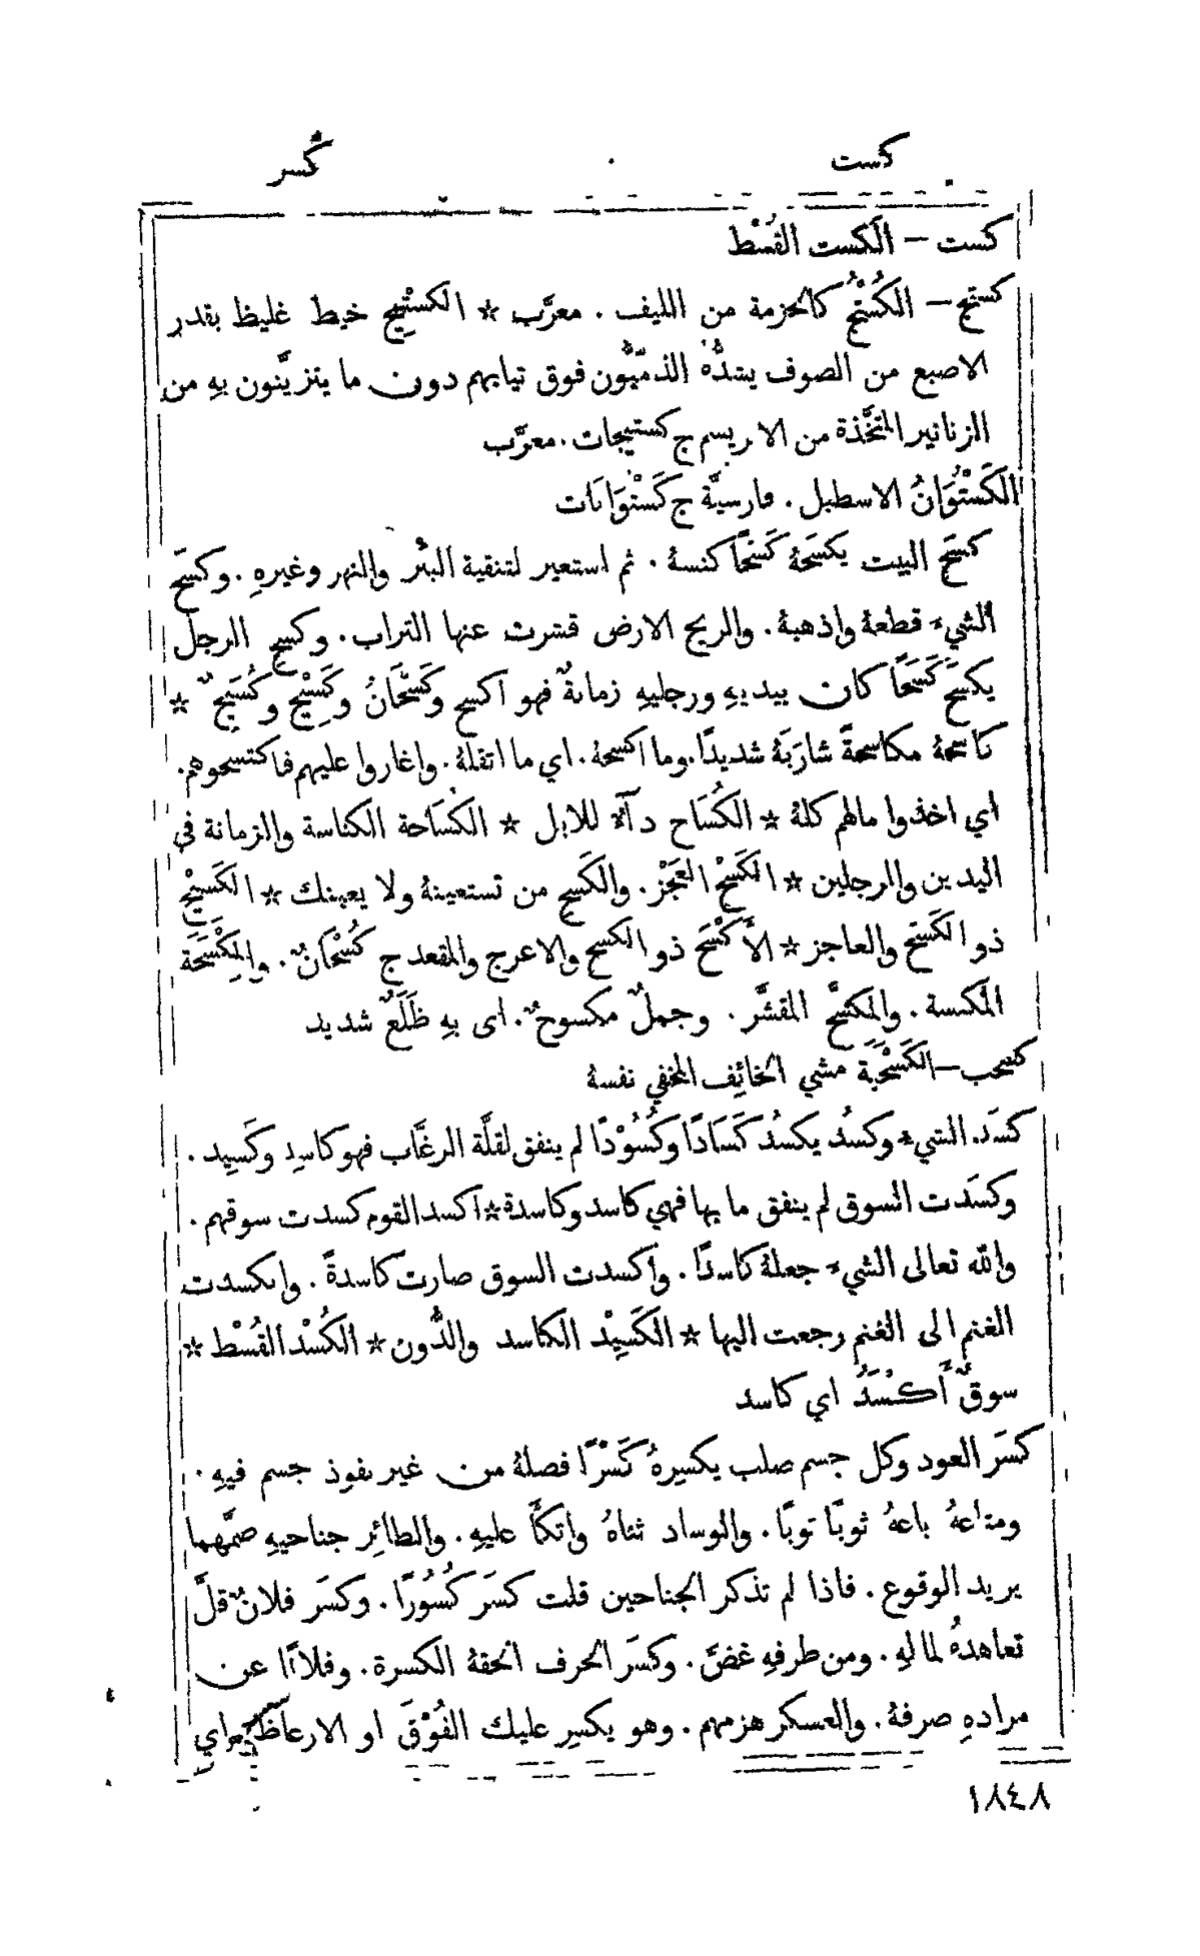 كست
كسر
كست – الكست القُسْط
كستج – الكُسْتُجُ كالحزمة من الليف . معرَّب * الكسْتِيج خيط غليظ بقدر
الاصبع من الصوف يشدُّهُ الذمّيُّون فوق ثيابهم دون ما يتزيَّنون بهِ من
الزنانير المتخَّذة من الابريسم ج كستيجات . معرَّب
الكَسْتُوَانُ الاسطبل . فارسيَّة ج كَسْتُوَانَات
كسَحَ البيت يكسَحَهُ كَسْحًا كنسهُ . ثم استعير لتنقية البئر والنهر وغيرهِ . وكسَحَ
الشيءَ قطعهُ واذهبهُ . والريح الارض قشرت عنها التراب . وكسِح الرجل
يكسَح كَسَحًا كان بيديهِ ورجليهِ زمانةٌ فهو اكسح وكَسْحَانُ وكَسِيْح وكُسَيْحٌ *
كاسَحَهُ مكاسحةً شارَبَهُ شديدًا . وما اكسحهُ . اي ما اثقلهُ . واغاروا عليهم فاكتسحوهم .
اي اخذوا مالهم كلهُ * الكُسَاح دآءٌ للابل * الكُسَاحة الكناسة والزمانة في
اليدين والرجلين * الكَسْح العَجْز . والكَسِح من تستعينهُ ولا يعينك * الكَسِيْح
ذو الكَسَح والعاجز * الأَكْسَح ذو الكسح والاعرج والمقعد ج كُسْحَانٌ . والمِكْسَحَة
المكنسة . والمكسَّح المقشَّر . وجملٌ مكسوحٌ . اى بهِ ظَلَعٌ شديد
كسحب – الكَسْحَبَة مشي الخائِف المخفي نفسهُ
كسَد الشيءُ وكسُد يكسُد كَسَادًا وكُسُوْدًا لم ينفق لقلَّة الرغَّاب فهو كاسِد وكَسِيد .
وكسَدت السوق لم ينفق ما بها فهي كاسد وكاسدة * اكسد القوم كسدت سوقهم .
والله تعالى الشيءَ جعلهُ كاسدًا . واكسدت السوق صارت كاسدةً . وانكسدت
الغنم الى الغنم رجعت اليها * الكَسِيْد الكاسد والدُّون * الكُسْد القُسْط *
سوقٌ أَكْسَدُ اي كاسد
كسَر العود وكل جسم صلب يكسِرهُ كَسْرًا فصلهُ من غير نفوذ جسم فيهِ .
ومتاعهُ باعهُ ثوبًا ثوبًا . والوساد ثناهُ واتكأَ عليهِ . والطائِر جناحيهِ ضمَّهما
يريد الوقوع . فاذا لم تذكر الجناحين قلت كسَر كُسُورًا . وكسَر فلانٌ قلَّ
تعاهدهُ لمالهِ . ومن طرفهِ غضَّ . وكسَر الحرف الحقهُ الكسرة . وفلانًا عن
مرادهِ صرفهُ . والعسكر هزمهم . وهو يكسِر عليك الفُوْقَ او الارعاظ اي
١٨٤٨